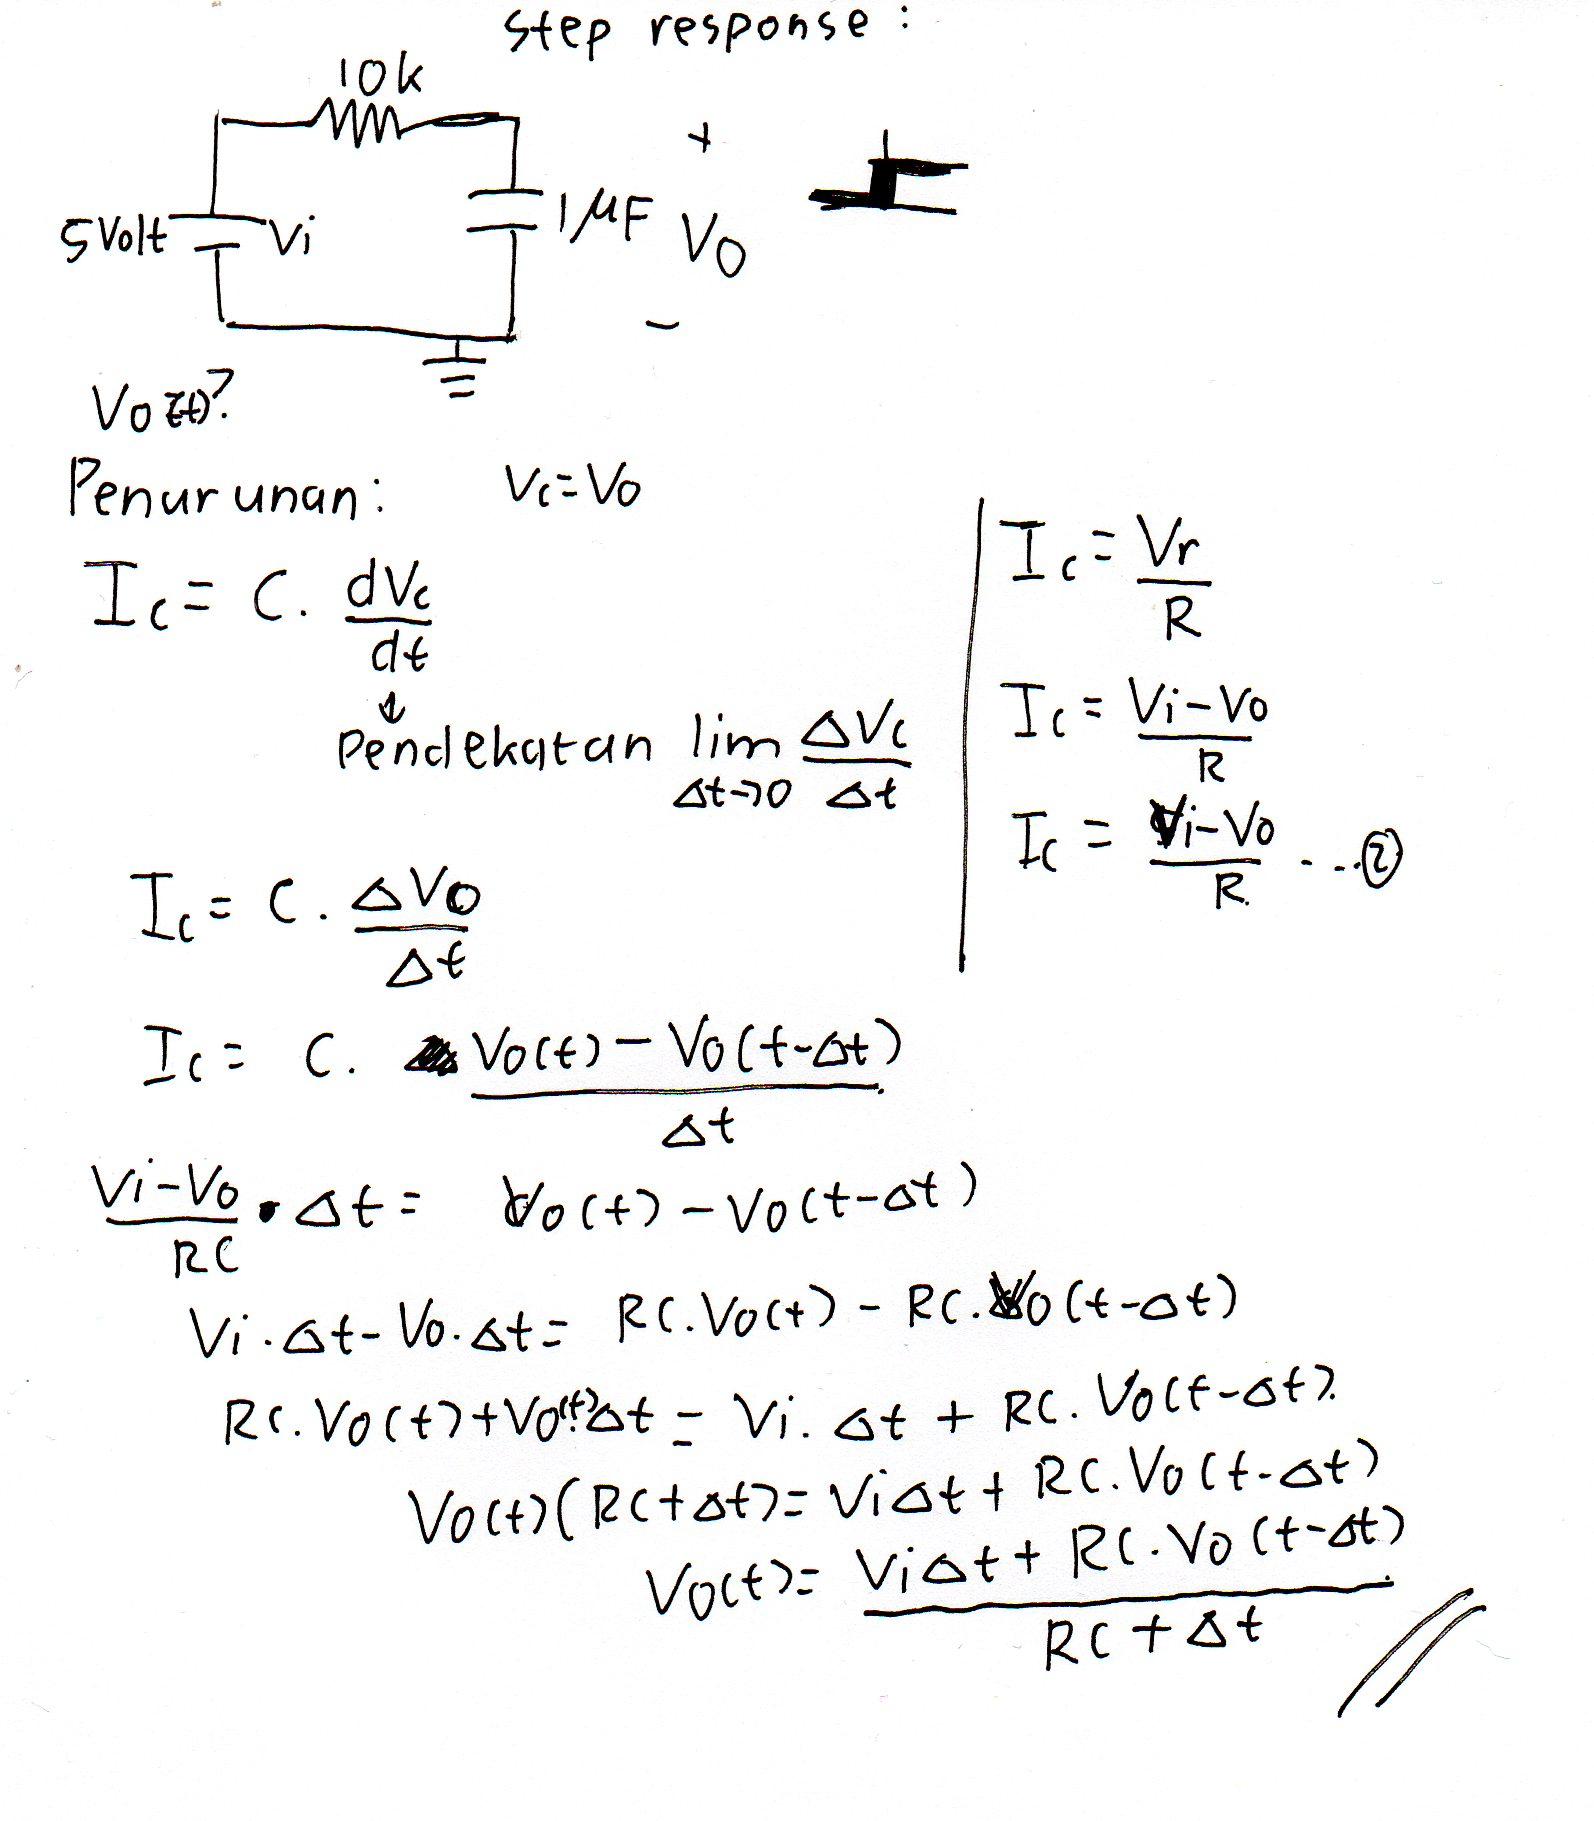 Step response :
10k
+
5Volt
Vi
1μF
Vo
-
Vo(t)?
Penurunan : Vc = Vo
Ic = C. dVc/dt
↓
Pendekatan lim Δt→0 ΔVc/Δt
Ic = C. ΔVo/Δt
Ic = C. Vo(t) - Vo(t-Δt)/Δt
Ic = Vr/R
Ic = Vi-Vo/R
Ic = Vi-Vo/R ...②
Vi-Vo/RC • Δt = Vo(t) - Vo(t-Δt)
Vi.Δt - Vo.Δt = RC.Vo(t) - RC.Vo(t-Δt)
RC.Vo(t)+Vo(t).Δt = Vi.Δt + RC.Vo(t-Δt).
Vo(t)(RC+Δt) = ViΔt + RC.Vo(t-Δt)
Vo(t) = ViΔt + RC.Vo(t-Δt)/RC + Δt